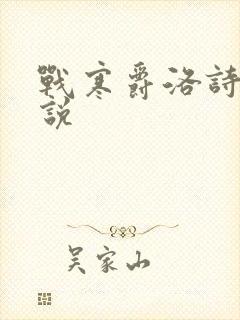 戰寒爵洛詩
說
吳家山